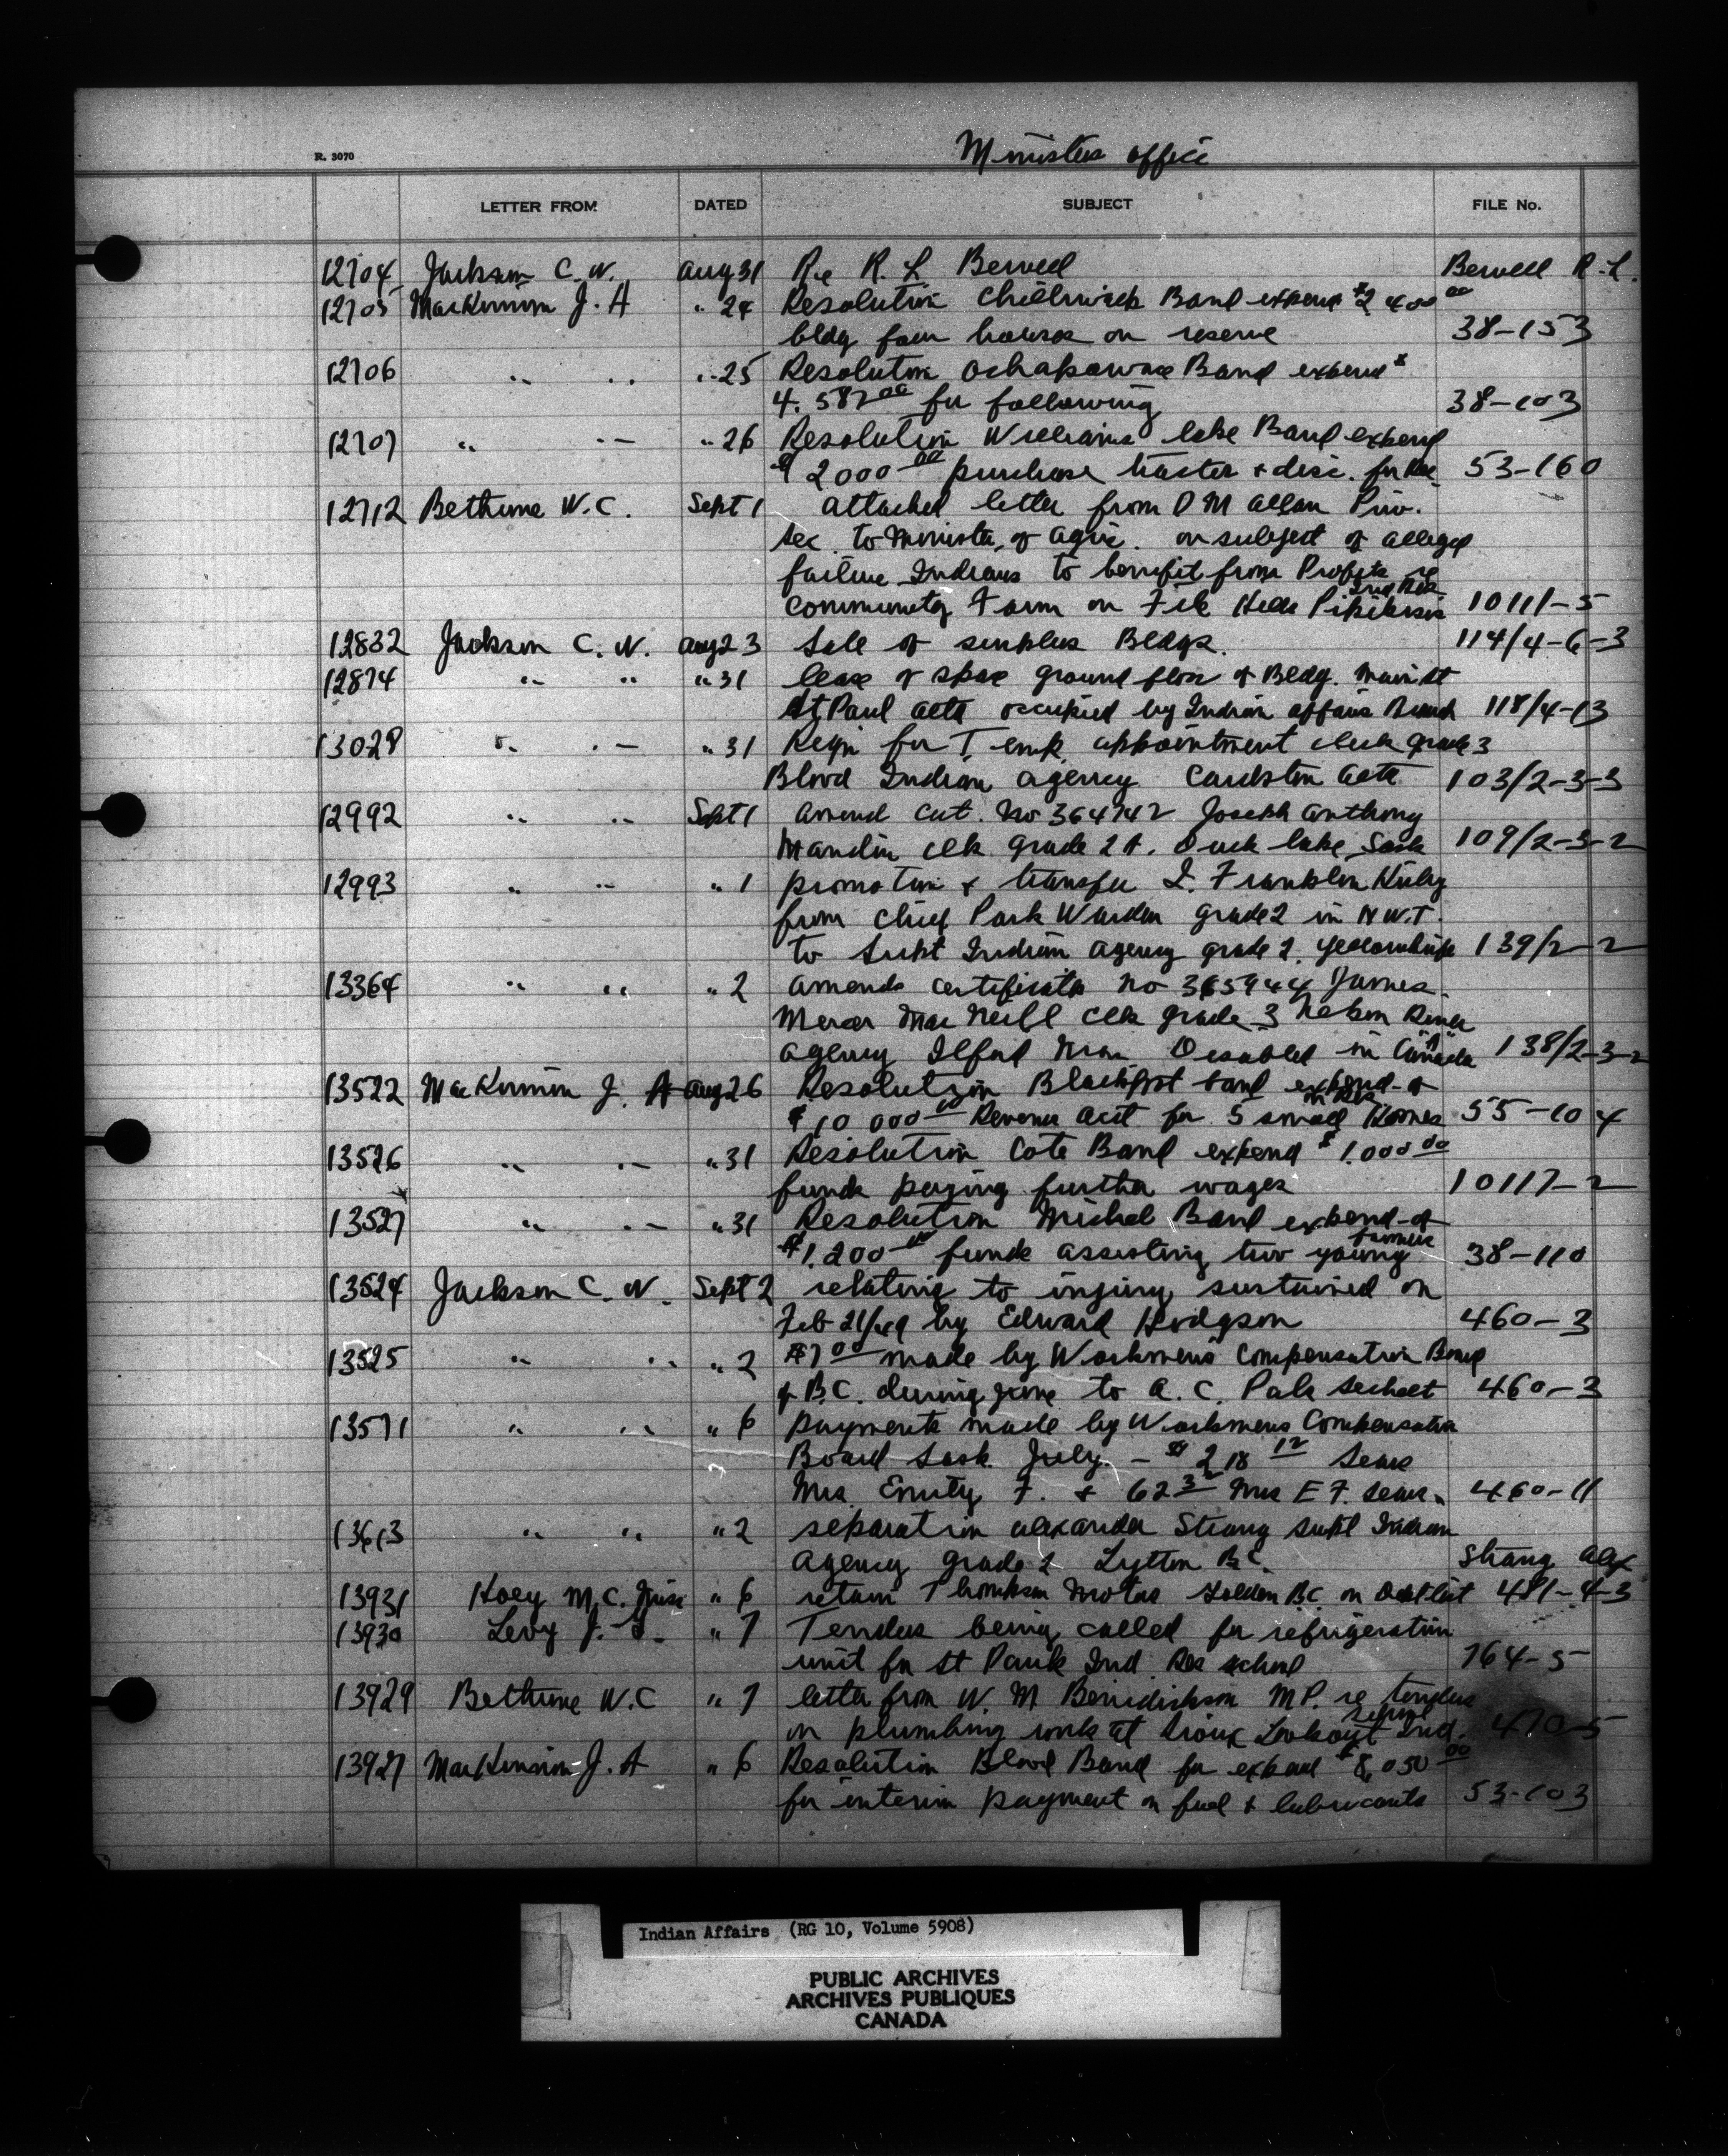 R. 3070
Ministers office
LETTER FROM DATED SUBJECT FILE No.
12704 Jackson C. W. Aug 31 Re R. L. Berwell Berwell R. L.
12705 MacKinnon J. A " 24 Resolution Chilliwack Band expend $2 400 00
bldg four houses on reserve 38-153
12706 " " " 25 Resolution Ochapowace Band expend $
4. 587 00 for following 38-103
12707 " " " 26 Resolution Williams lake Band expend
$ 2000 00 purchase tractor & disc. for Res 53-160
12712 Bethune W. C. Sept 1 attached letter from D M Allan Priv.
Sec. to Minister of Agric. on subject of alleged
failure Indians to benefit from Profits re
Ind Res
community Farm on File Hills Pikikisis 10111-5
12832 Jackson C. W. Aug 23 Sale of surplus Bldgs. 114/4-6-3
12874 " " " 31 lease of space ground floor of Bldg. Main St
St. Paul Alta occupied by Indian Affairs Branch 118/4-13
13028 " " " 31 Reqn for Temp appointment clerk grade 3
Blood Indian agency Cardston Alta 103/2-3-3
12992 " " Sept 1 Amend Cert. No 364742 Joseph Anthony
Mandin clk grade 2A. Duck lake, Sask 109/2-3-2
12993 " " " 1 promotion & transfer I. Franklin Kirby
from Chief Park Warden grade 2 in N W. T.
to Supt Indian agency grade 2. Yellowknife 139/2-2
13364 " " " 2 Amends certificate No 365944 James
Mercer Mac Neill clk grade 3 Nelson River
agency Ilford Man Disabled in Canada 138/2-3-2
13522 MacKinnon J. A Aug 26 Resolution Blackfoot band expend of
on Res
$ 10 000 00 Revenue acct for 5 small Homes 55-104
13526 " " " 31 Resolution Cote Band expend $ 1.000 00
funds paying further wages 10117-2
13527 " " " 31 Resolution Michel Band expend of
farmers
$1.200 00 funds assisting two young 38-110
13524 Jackson C. W. Sept 2 relating to injury sustained on
Feb 21/49 by Edward Hodgson 460-3
13525 " " " 2 $7 00 made by Workmens Compensation Board
of B.C. during June to A. C. Sechelt 460-3
13571 " " " 6 payments made by Workmens Compensation
Board Sask July. - $ 218 12 Sears
Mrs. Emily F. & 62 32 Mrs E F. Sears. 460-11
13613 " " " 2 separation Alexander Strang Supt Indian
Agency grade 2 Lytton B.C. Strang Alex
13931 Hoey M. C. Miss " 6 return Thompson Motors Golden B.C. on list 481-4-3
13930 Levy J. " 7 Tenders being called for refrigeration
unit for St Pauls Ind. Res school 764-5
13929 Bethune W. C " 7 letter from W. M Benidickson M P. re tenders
School
on plumbing work at Sioux Lookout Ind. 470-5
13927 MacKinnon J. A " 6 Resolution Blood Band for expend $8,050 00
for interim payment on fuel & lubricants 53-103
Indian Affairs (RG 10, Volume 5908)
PUBLIC ARCHIVES
ARCHIVES PUBLIQUES
CANADA